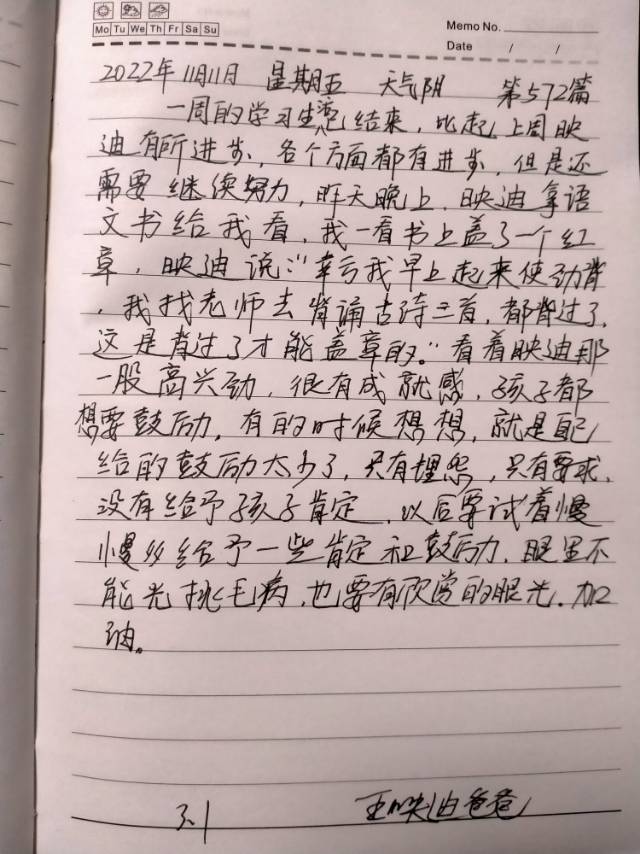 Mo Tu We Th Fr Sa Su
Memo No.
Date / /
2022年11月11 星期五 天气阴 第572篇
一周的学习生活已结束,比起上周映
迪有所进步,各个方面都有进步,但是还
需要继续努力,昨天晚上,映迪拿语
文书给我看,我一看书上盖了一个红
章,映迪说:"幸亏我早上起来使劲背
,我找老师去背诵古诗三首,都背过了,
这是背过了才能盖章的。"看着映迪那
一股高兴劲,很有成就感,孩子都
想要鼓励,有的时候想想,就是自己
给的鼓励太少了,只有埋怨,只有要求,
没有给予孩子肯定,以后要试着慢
慢的给予一些肯定和鼓励,眼里不
能光挑毛病,也要有欣赏的眼光.加
油。
王映迪爸爸